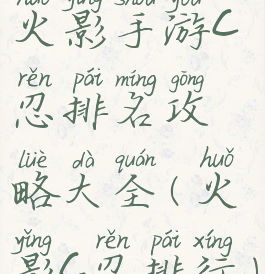 huǒ yǐng shǒu yóu
火影手游C
rěn pái míng gōng
忍排名攻
lüè dà quán huǒ
略大全(火
yǐng rěn pái xíng
影C忍排行)